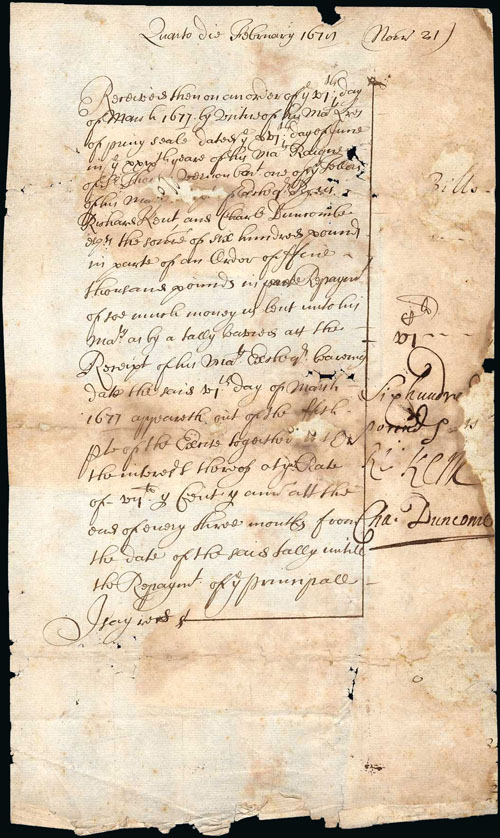 Quarto die February 1678 (No: 21)
Received then on an order of ye vjth day
of March 1677 by vertue of his Mats Lres
of privy seale dated ye day of June
in ye yeare of his Mats Raigne
of Sr Vernon one of ye
of his Ma
Richard Kent and Charls Duncombe
Esqrs the some of six hundred pounds
in parte of an Order of ffive
thousand pounds in Repaymt
of soe much money by lent unto his
Maty as by a tally leavied att the
Receipt of his Mats Excheqr bearing
date the said vjth day of March
1677 appeareth out of the
pte of the Excise together with
the interest thereof at ye Rate
of p Cent p ann att the
end of every three months from
the date of the said tally untill
the Repaymt of ye principall
I say recd
Bills
vj
Six hundred
pounds
Ri: Kent
Cha: Duncombe